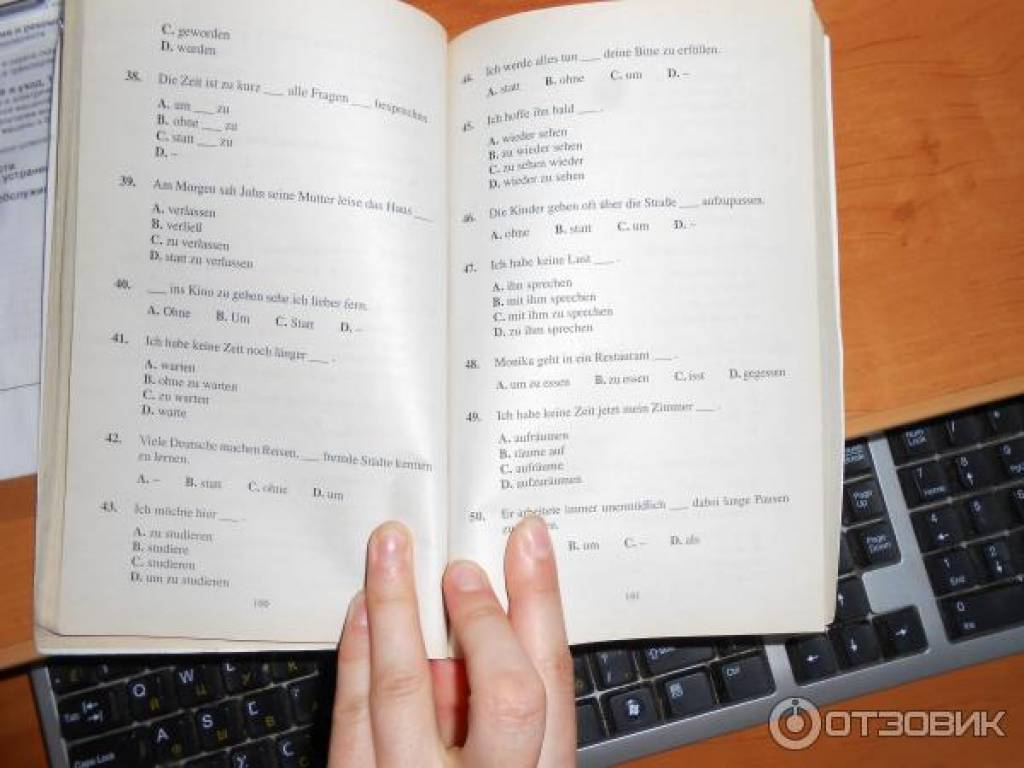 C. geworden
D. worden
38. Die Zeit ist zu kurz ___ alle Fragen ___ besprechen
A. um ___ zu
B. ohne ___ zu
C. statt ___ zu
D. –
39. Am Morgen sah John seine Mutter leise das Haus ___
A. verlassen
B. verließ
C. zu verlassen
D. statt zu verlassen
40. ___ ins Kino zu gehen sehe ich lieber fern.
A. Ohne B. Um C. Statt D. –
41. Ich habe keine Zeit noch länger ___ .
A. warten
B. ohne zu warten
C. zu warten
D. warte
42. Viele Deutsche machen Reisen, ___ fremde Städte kennen
zu lernen.
A. – B. statt C. ohne D. um
43. Ich möchte hier ___ .
A. zu studieren
B. studiere
C. studieren
D. um zu studieren
100
Ich werde alles tun ___ deine Bitte zu erfüllen.
A. statt B. ohne C. um D. –
45. Ich hoffe ihn bald ___ .
A. wieder sehen
B. zu wieder sehen
C. zu sehen wieder
D. wieder zu sehen
46. Die Kinder gehen oft über die Straße ___ aufzupassen.
A. ohne B. statt C. um D. –
47. Ich habe keine Lust ___ .
A. ihn sprechen
B. mit ihm sprechen
C. mit ihm zu sprechen
D. zu ihm sprechen
48. Monika geht in ein Restaurant ___ .
A. um zu essen B. zu essen C. isst D. gegessen
49. Ich habe keine Zeit jetzt mein Zimmer ___ .
A. aufräumen
B. räume auf
C. aufräume
D. aufzuräumen
50. Er arbeitete immer unermüdlich ___ dabei lange Pausen
B. um C. – D. als
101
Num Lock
7 Home
8
9
4
5
1 End
2
0 Ins
Page Up
Page Down
Ctrl
Tab
Q W
A S
Caps Lock
ОТЗОВИК